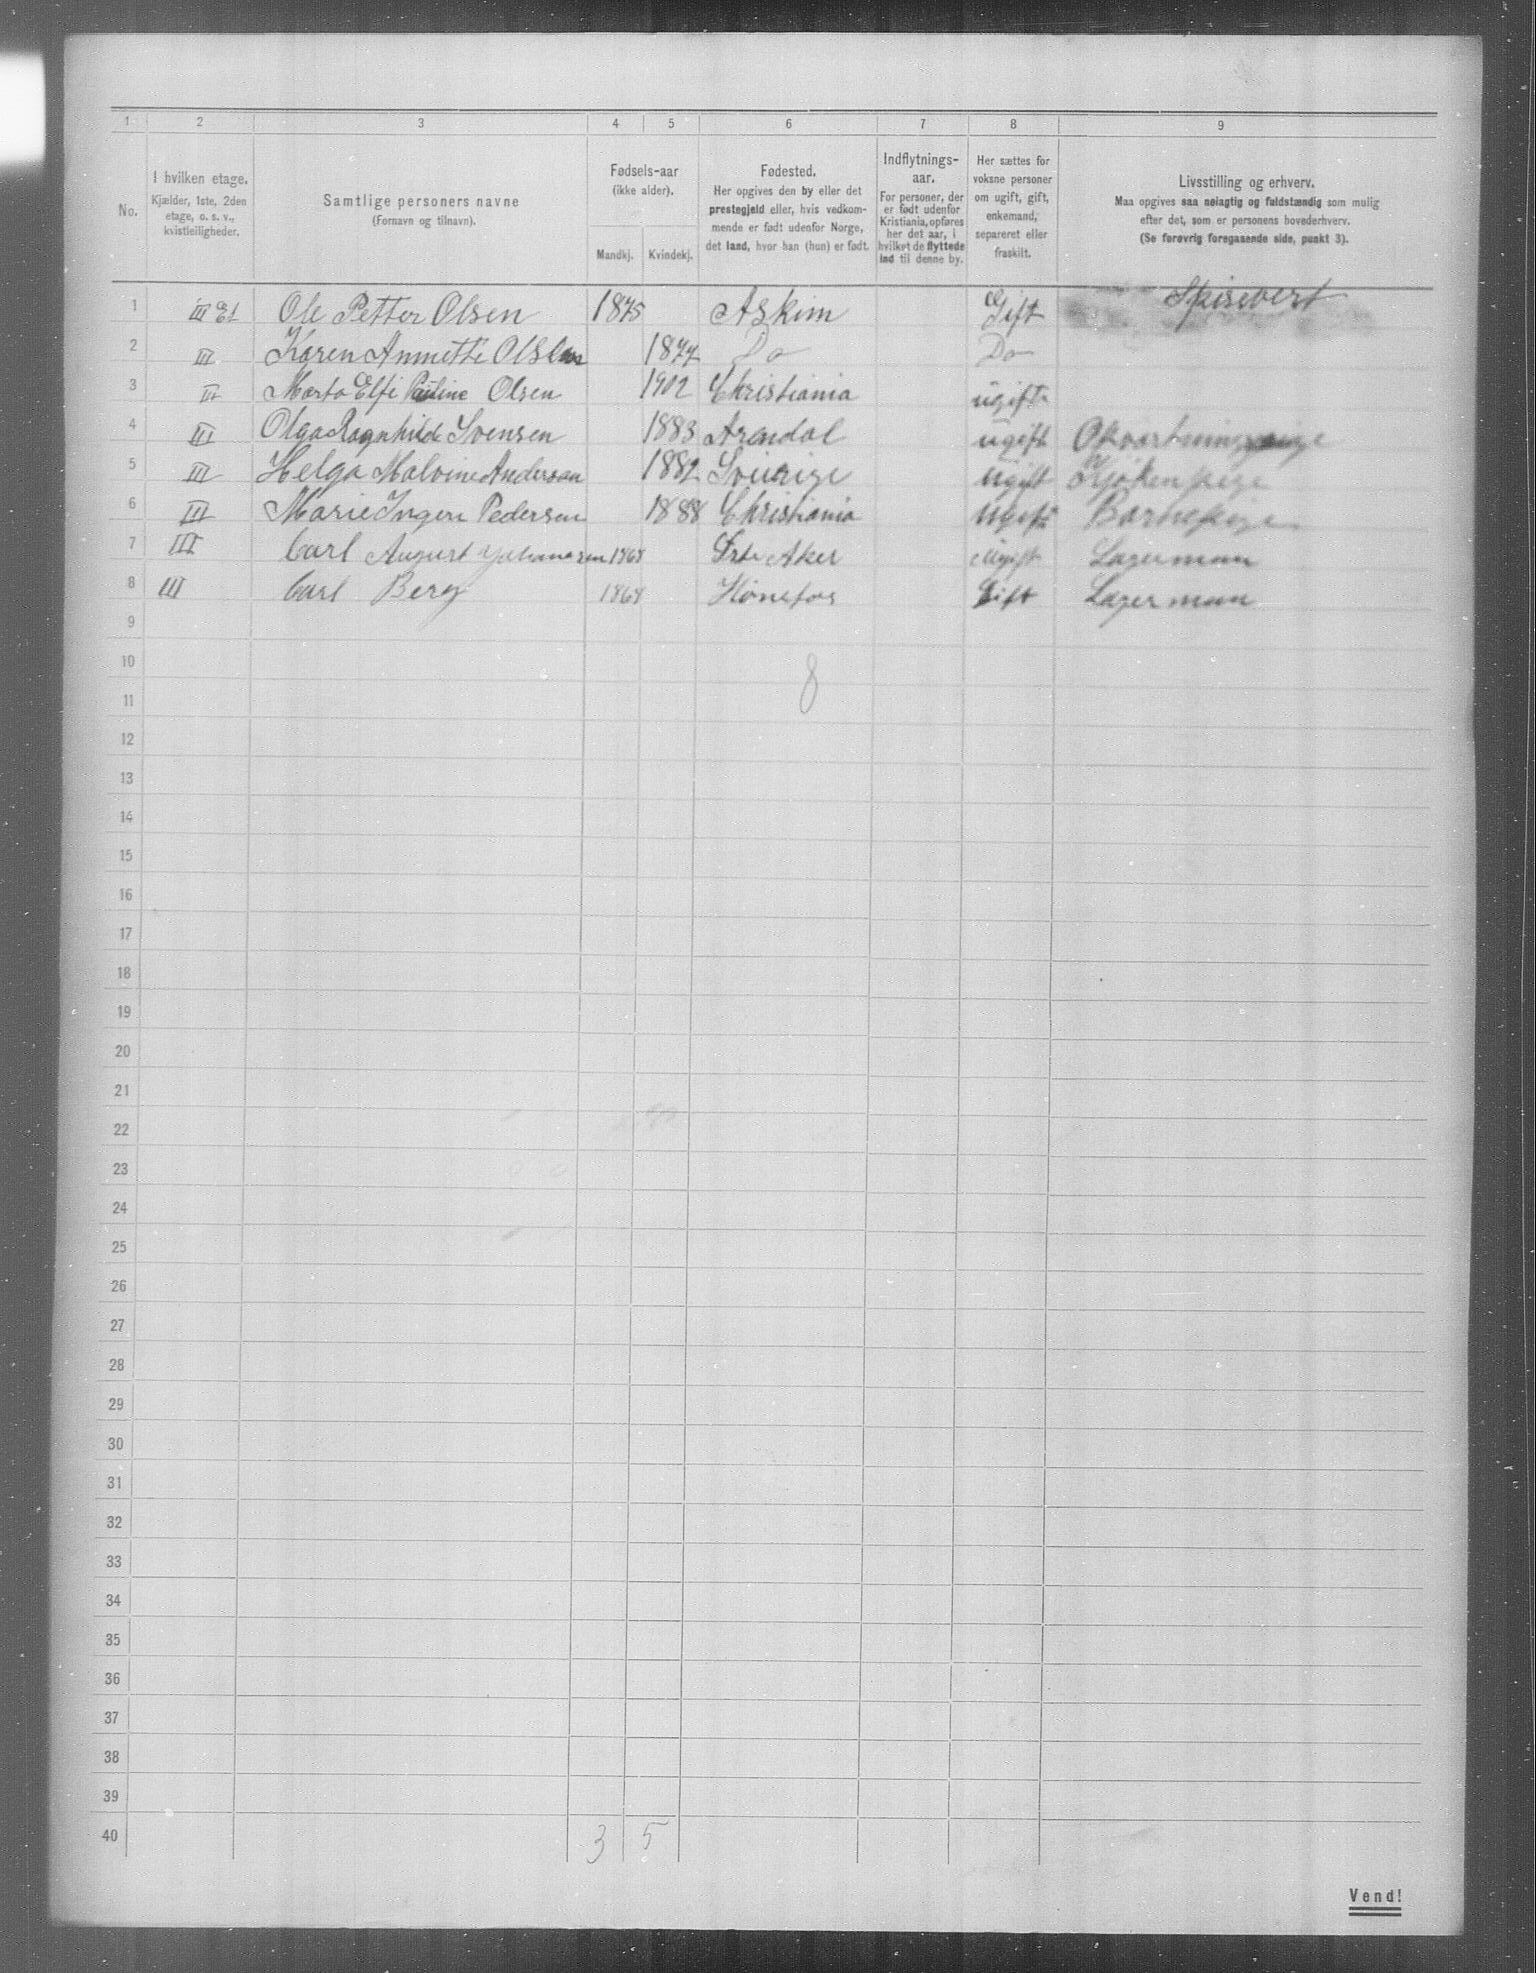 1 2 3 4 5 6 7 8 9
No.
I hvilken etage.
Kjælder, 1ste, 2den
etage, o. s. v.,
kvistleiligheder.
Samtlige personers navne
(Fornavn og tilnavn).
Fødsels-aar
(ikke alder).
Mandkj. Kvindekj.
Fødested.
Her opgives den by eller det
prestegjeld eller, hvis vedkom-
mende er født udenfor Norge,
det land, hvor han (hun) er født.
Indflytnings-
aar.
For personer, der
er født udenfor
Kristiania, opføres
her det aar, i
hvilket de flyttede
ind til denne by.
Her sættes for
voksne personer
om ugift, gift,
enkemand,
separeret eller
fraskilt.
Livsstilling og erhverv.
Maa opgives saa nøiagtig og fuldstændig som mulig
efter det, som er personens hovederhverv.
(Se forøvrig foregaaende side, punkt 3).
1 III Et Ole Petter Olsen 1875 Askim Gift Spisevert
2 III Karen Annette Olsen 1877 Do Do
3 III Marta Elfi Pauline Olsen 1902 Christiania ugift
4 III Olga Ragnhilde Svensen 1883 Arendal ugift Opvartningspige
5 III Helga Malvine Anderson 1882 Sverige Ugift Kjøkenpige
6 III Marie Ingen Pedersen 1888 Christiania Ugift Barnepige
7 III Carl August Johansen 1868 Østr Aker Ugift Lagerman
8 III Carl Berg 1868 Hønefos Gift Lagerman
9
10
8
11
12
13
14
15
16
17
18
19
20
21
22
23
24
25
26
27
28
29
30
31
32
33
34
35
36
37
38
39
40 3 5
Vend!